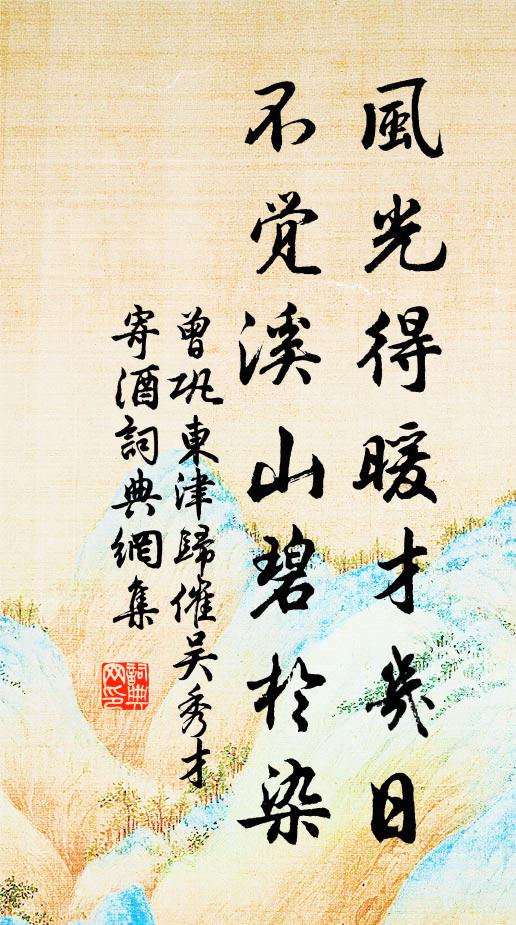 風光得暖才幾日
不覚溪山碧於染
曾巩東津歸催吴秀才
寄酒詞典網集
詞典网印